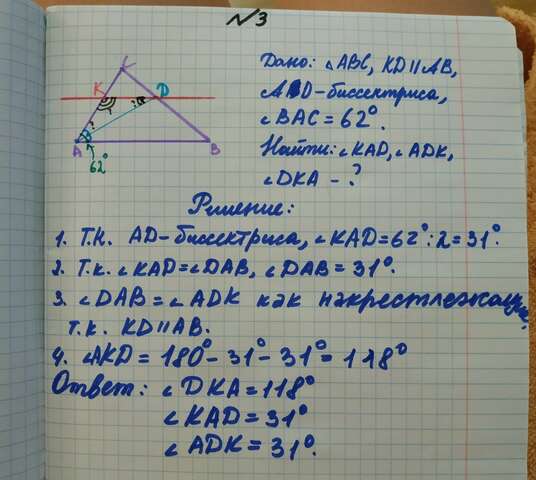 №3
C
K
D
A
B
62°
Дано: △ABC, KD∥AB,
AD-биссектриса,
∠BAC = 62°.
Найти: ∠KAD, ∠ADK,
∠DKA - ?
Решение:
1. Т.к. AD-биссектриса, ∠KAD=62°:2=31°.
2. Т.к. ∠KAD=∠DAB, ∠DAB=31°.
3. ∠DAB=∠ADK как накрестлежащие,
т.к. KD∥AB.
4. ∠AKD = 180°-31°-31°=118°
Ответ: ∠DKA=118°
∠KAD=31°
∠ADK=31°.